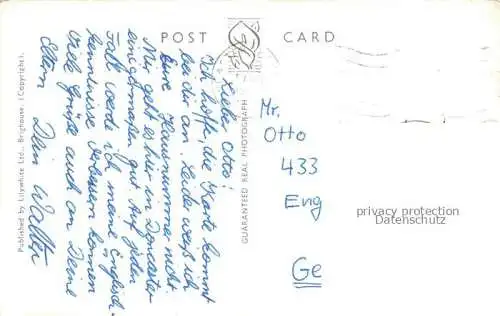 POST CARD
Lieber Otto!
Ich hoffe, die Karte kommt
bei dir an. Leider weiß ich
Eure Hausnummer nicht.
Mir geht es hier in Doncaster
einigermaßen gut. Auf jeden
Fall werde ich meine Englisch-
kenntnisse verbessern können
Viele Grüße auch an Deine
Eltern Dein Walter
Published by Lilywhite Ltd., Brighouse. (Copyright).
GUARANTEED REAL PHOTOGRAPH
Mr.
Otto
433
Eng
Ge
privacy protection
Datenschutz